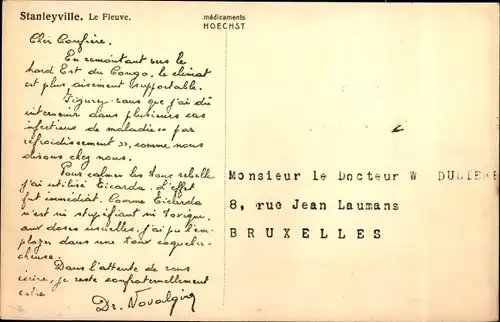 Stanleyville. Le Fleuve.
médicaments
HOECHST
Cher Confrère.
En remontant vers le
Nord Est du Congo, le climat
est plus aisément supportable.
Figurez-vous que j'ai dû
intervenir dans plusieurs cas
infectieux de maladies "par
refroidissement", comme nous
disons chez nous.
Pour calmer les toux rebelles
j'ai utilisé Ticarda. L'effet
fut immédiat. Comme Ticarda
n'est ni stupéfiant ni toxique,
aux doses usuelles, j'ai pu l'em-
ployer dans une toux coquelu-
cheuse.
Dans l'attente de vous
écrire, je reste confraternellement
votre
Dr. Novalgin
Monsieur le Docteur W DULIERE
8, rue Jean Laumans
BRUXELLES